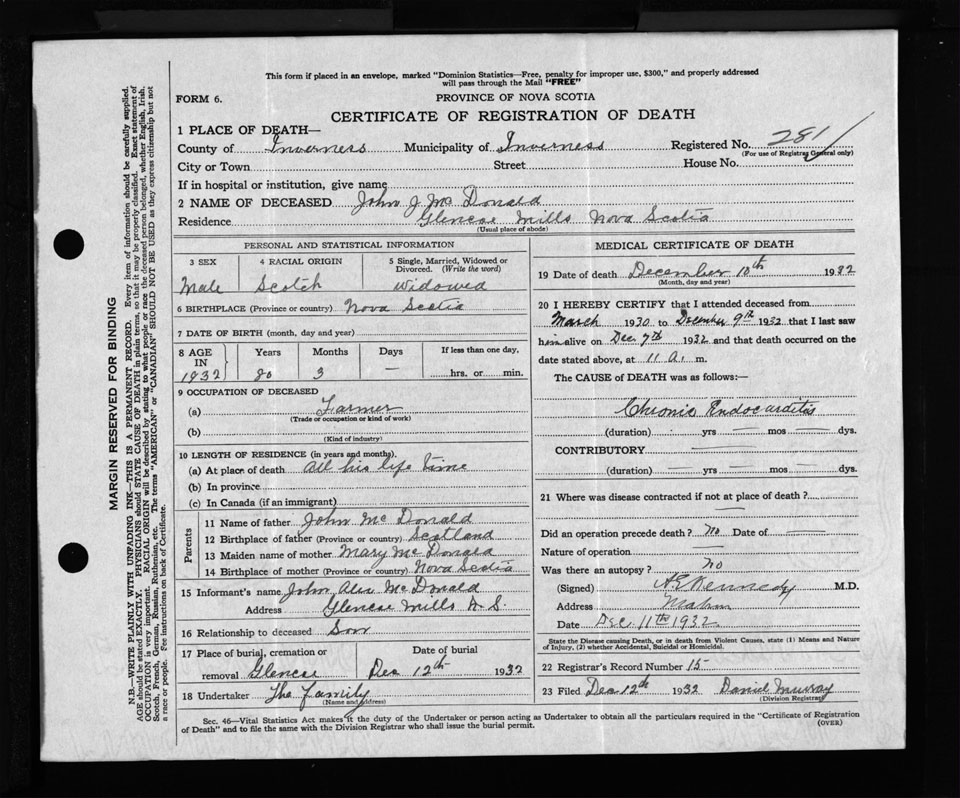 This form if placed in an envelope, marked "Dominion Statistics—Free, penalty for improper use, $300," and properly addressed
will pass through the Mail "FREE"
FORM 6.
PROVINCE OF NOVA SCOTIA
CERTIFICATE OF REGISTRATION OF DEATH
1 PLACE OF DEATH—
County of Inverness Municipality of Inverness Registered No. 281
(For use of Registrar General only)
City or Town Street House No.
If in hospital or institution, give name
2 NAME OF DECEASED John J. Mc Donald
Residence Glencoe Mills Nova Scotia
(Usual place of abode)
PERSONAL AND STATISTICAL INFORMATION
3 SEX 4 RACIAL ORIGIN 5 Single, Married, Widowed or
Divorced. (Write the word)
Male Scotch Widowed
6 BIRTHPLACE (Province or country) Nova Scotia
7 DATE OF BIRTH (month, day and year)
8 AGE Years Months Days If less than one day.
IN
1932 80 3 — hrs. or min.
9 OCCUPATION OF DECEASED
(a) Farmer
(Trade or occupation or kind of work)
(b)
(Kind of industry)
10 LENGTH OF RESIDENCE (in years and months).
(a) At place of death All his life time
(b) In province
(c) In Canada (if an immigrant)
Parents
11 Name of father John Mc Donald
12 Birthplace of father (Province or country) Scotland
13 Maiden name of mother Mary Mc Donald
14 Birthplace of mother (Province or country) Nova Scotia
15 Informant's name John Alex McDonald
Address Glencoe Mills N.S.
16 Relationship to deceased Son
17 Place of burial, cremation or Date of burial
removal Glencoe Dec 12th 1932
18 Undertaker The Family
(Name and address)
MEDICAL CERTIFICATE OF DEATH
19 Date of death December 10th 1932
(Month, day and year)
20 I HEREBY CERTIFY that I attended deceased from
March 1930 to December 9th 1932 that I last saw
him alive on Dec 7th 1932 and that death occurred on the
date stated above, at 11 A. m.
The CAUSE of DEATH was as follows:—
Chronic Endocarditis
(duration) — yrs — mos — dys.
CONTRIBUTORY —
(duration) — yrs — mos — dys.
21 Where was disease contracted if not at place of death? —
Did an operation precede death? No Date of —
Nature of operation —
Was there an autopsy? No
(Signed) Kennedy M.D.
Address Mabou
Date Dec 11th 1932
State the Disease causing Death, or in death from Violent Causes, state (1) Means and Nature
of Injury, (2) whether Accidental, Suicidal or Homicidal.
22 Registrar's Record Number 15
23 Filed Dec 12th 1932 Daniel Murray
(Division Registrar)
Sec. 46—Vital Statistics Act makes it the duty of the Undertaker or person acting as Undertaker to obtain all the particulars required in the "Certificate of Registration
of Death" and to file the same with the Division Registrar who shall issue the burial permit. (OVER)
MARGIN RESERVED FOR BINDING
N.B.—WRITE PLAINLY WITH UNFADING INK—THIS IS A PERMANENT RECORD. Every item of information should be carefully supplied.
AGE should be stated EXACTLY. PHYSICIANS should STATE CAUSE OF DEATH in plain terms, so that it may be properly classified. Exact statement of
OCCUPATION is very important. RACIAL ORIGIN will be described by stating to what people or race the deceased person belonged, whether English, Irish,
Scotch, French, German, Russian, Ruthenian, etc. The terms "AMERICAN" or "CANADIAN" SHOULD NOT BE USED as they express citizenship but not
a race or people. See instructions on back of Certificate.